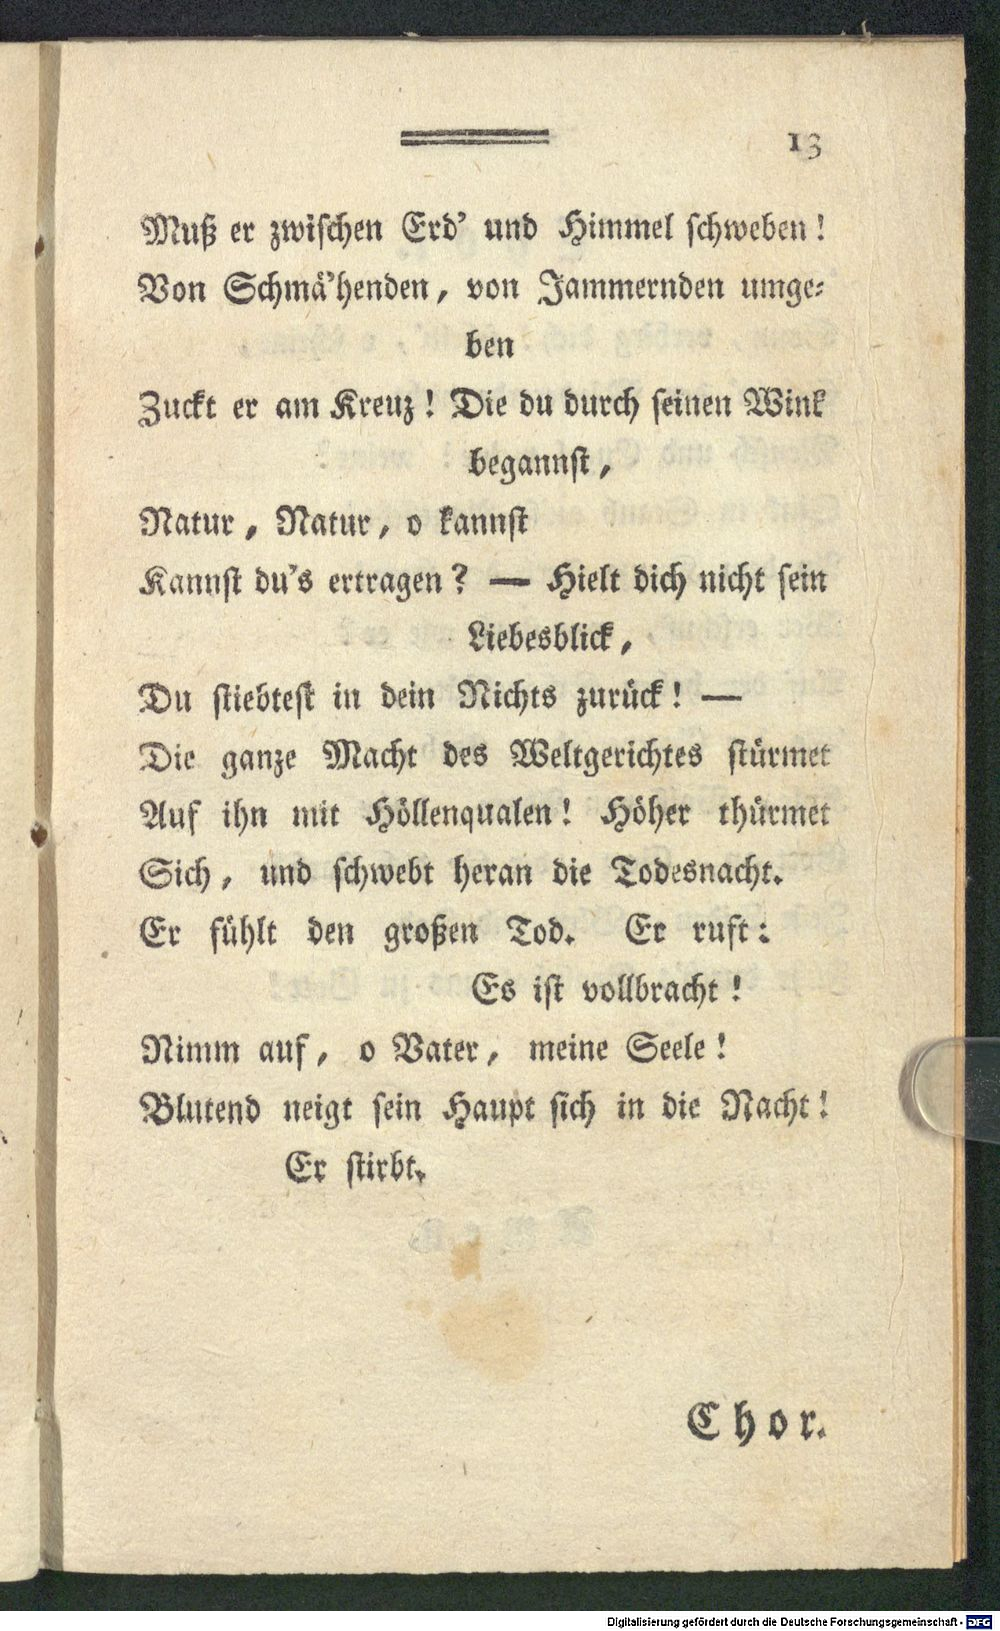 13
Muß er zwischen Erd’ und Himmel schweben!
Von Schmä’henden, von Jammernden umge-
ben
Zuckt er am Kreuz! Die du durch seinen Wink
begannst,
Natur, Natur, o kannst
Kannst du’s ertragen? — Hielt dich nicht sein
Liebesblick,
Du stiebtest in dein Nichts zurück! —
Die ganze Macht des Weltgerichtes stürmet
Auf ihn mit Höllenqualen! Höher thürmet
Sich, und schwebt heran die Todesnacht.
Er fühlt den großen Tod. Er ruft:
Es ist vollbracht!
Nimm auf, o Vater, meine Seele!
Blutend neigt sein Haupt sich in die Nacht!
Er stirbt.
Chor.
Digitalisierung gefördert durch die Deutsche Forschungsgemeinschaft - DFG